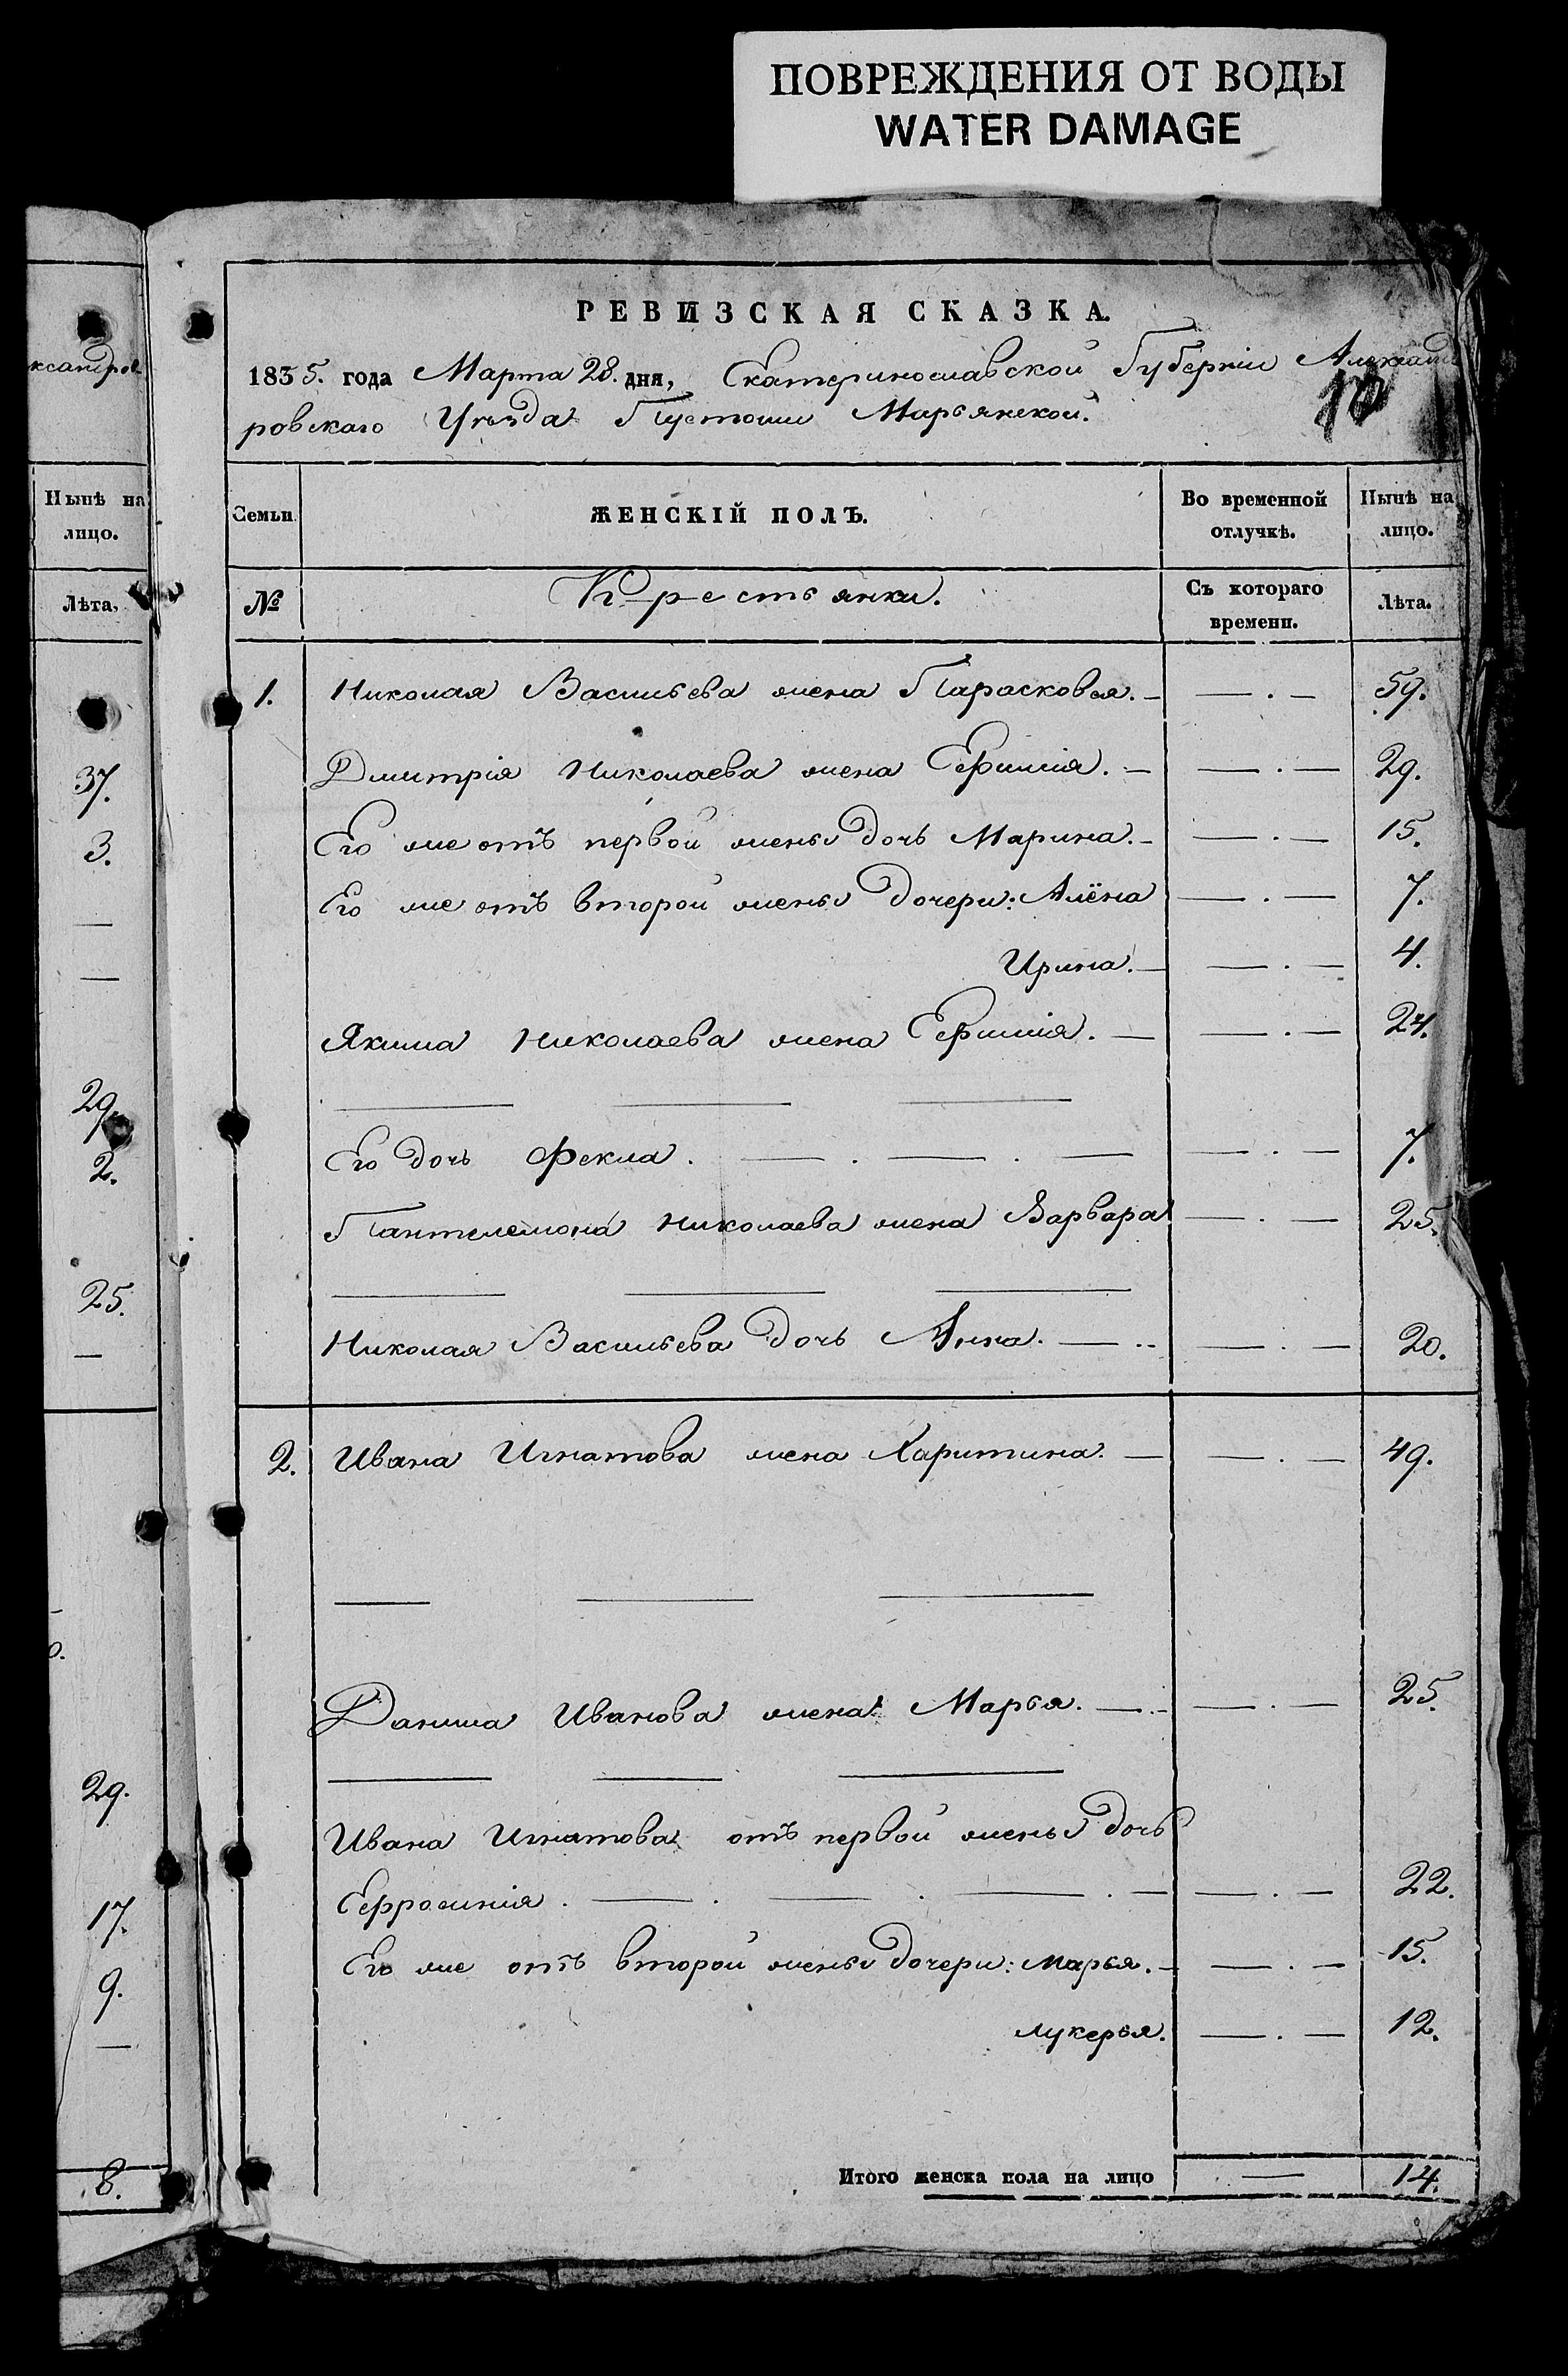 ПОВРЕЖДЕНИЯ ОТ ВОДЫ
WATER DAMAGE
РЕВИЗСКАЯ СКАЗКА.
1835. года Марта 28. дня, Екатеринославской Губерніи Александ
ровскаго Уѣзда Пустоши Марьянской.
ксандров
Нынѣ на
лицо.
Лѣта.
37.
3.
—
—
29.
2.
25.
—
29.
17.
9.
—
8.
Семьи ЖЕНСКІЙ ПОЛЪ. Во временной отлучкѣ. Нынѣ на лицо.
№ Крестьянки. Съ котораго времени. Лѣта.
1. Николая Васильева жена Парасковья. — — . — 59.
Дмитрія Николаева жена Ефимія. — — . — 29.
Его же отъ первой жены дочь Марина. — — . — 15.
Его же отъ второй жены дочери: Алёна — . — 7.
Ирина. — — . — 4.
Якима Николаева жена Ефимія. — — . — 24.
— — —
Его дочь Фекла. — . — . — — . — 7.
Пантелемона Николаева жена Варвара — . — 25.
— — —
Николая Васильева дочь Анна. — .. — . — 20.
2. Ивана Игнатова жена Харитина. — — . — 49.
— — —
Данила Иванова жена Марья. — . — — . — 25.
— — —
Ивана Игнатова отъ первой жены дочь
Ефросинія . — . — . — . — — . — 22.
Его же отъ второй жены дочери: Марья. — — . — 15.
Лукерья. — . — 12.
Итого женска пола на лицо — 14.